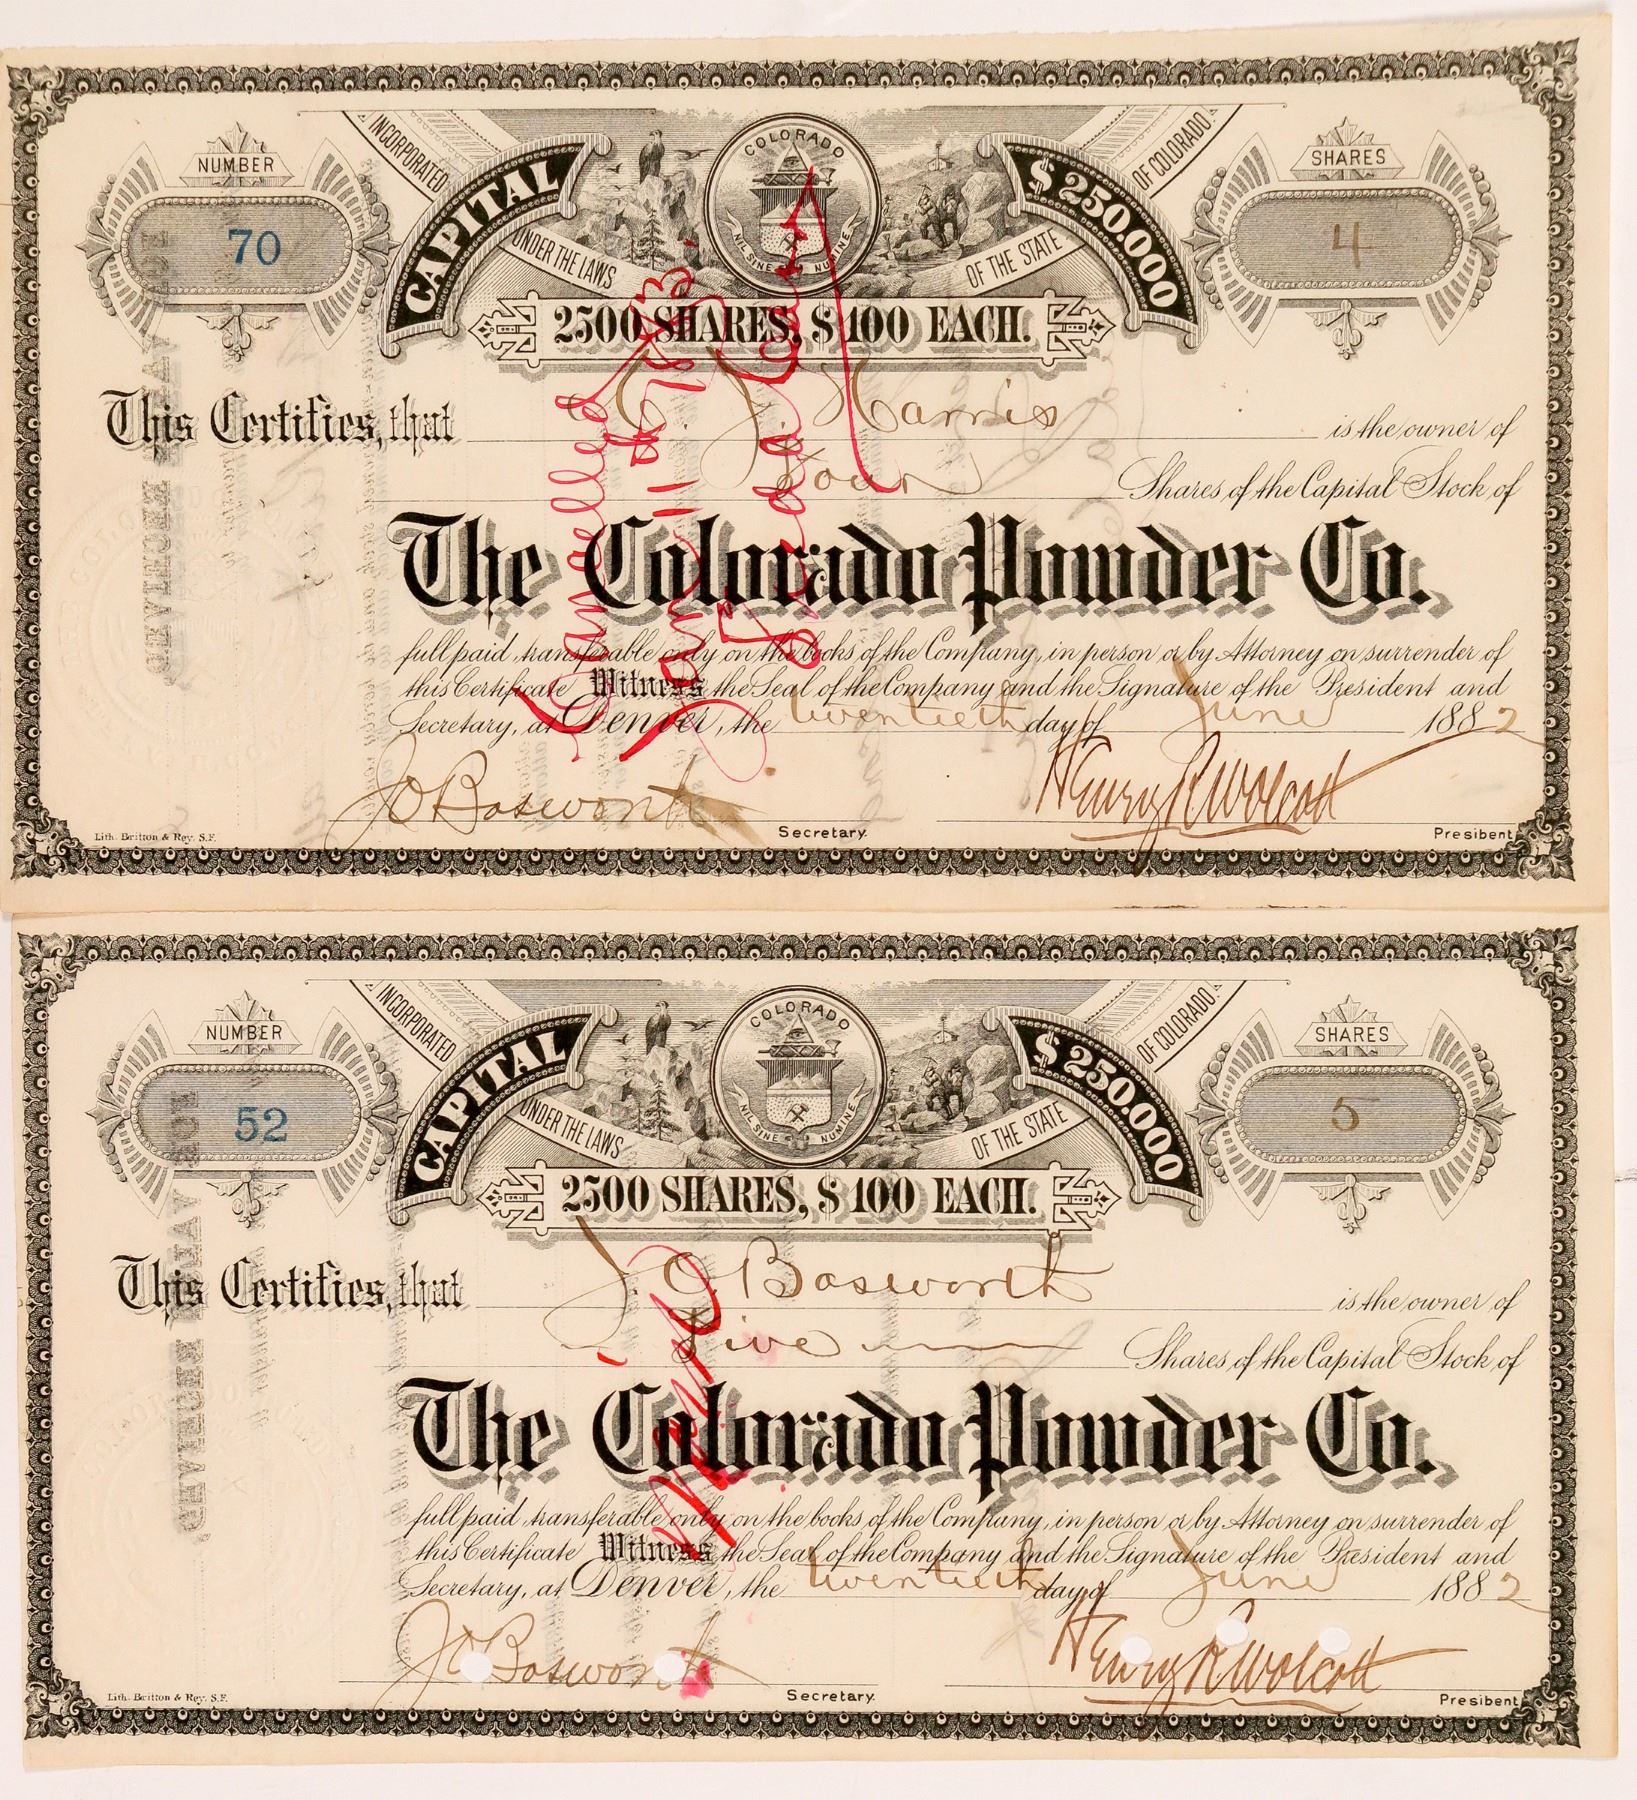 NUMBER
70
INCORPORATED
UNDER THE LAWS
OF THE STATE
OF COLORADO
CAPITAL
$250.000
COLORADO
NIL SINE NUMINE
SHARES
4
2500 SHARES, $100 EACH.
This Certifies, that C. J. Harris is the owner of
Four Shares of the Capital Stock of
The Colorado Powder Co.
full paid, transferable only on the books of the Company, in person or by Attorney on surrender of
this Certificate Witness the Seal of the Company and the Signature of the President and
Secretary, at Denver, the twentieth day of June 1882
J O Bosworth Secretary.
Henry R. Wolcott President
Lith. Britton & Rey. S.F.
Cancelled
NUMBER
52
INCORPORATED
UNDER THE LAWS
OF THE STATE
OF COLORADO
CAPITAL
$250.000
COLORADO
NIL SINE NUMINE
SHARES
5
2500 SHARES, $100 EACH.
This Certifies, that J O. Bosworth is the owner of
Five Shares of the Capital Stock of
The Colorado Powder Co.
full paid, transferable only on the books of the Company, in person or by Attorney on surrender of
this Certificate Witness the Seal of the Company and the Signature of the President and
Secretary, at Denver, the twentieth day of June 1882
J O Bosworth Secretary.
Henry R. Wolcott President
Lith. Britton & Rey. S.F.